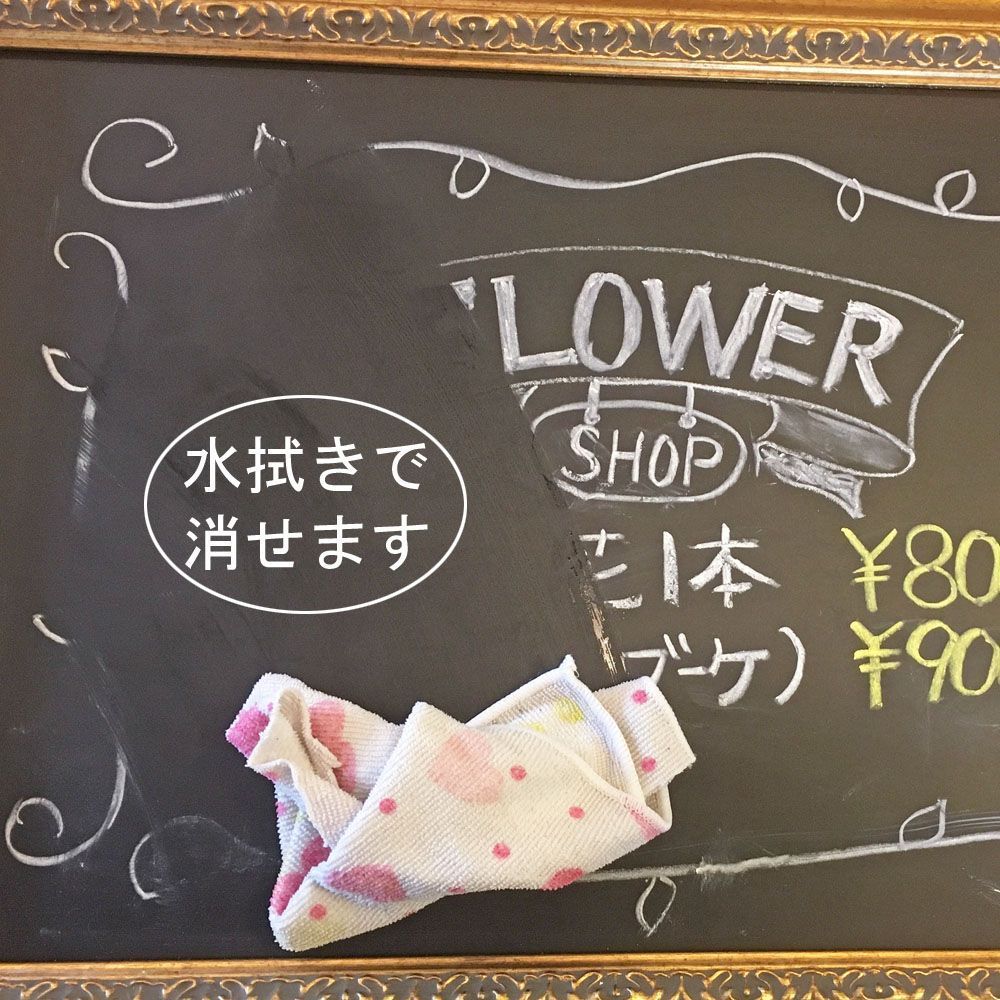 LOWER
SHOP
水拭きで
消せます
1本
¥80
ブーケ)
¥90